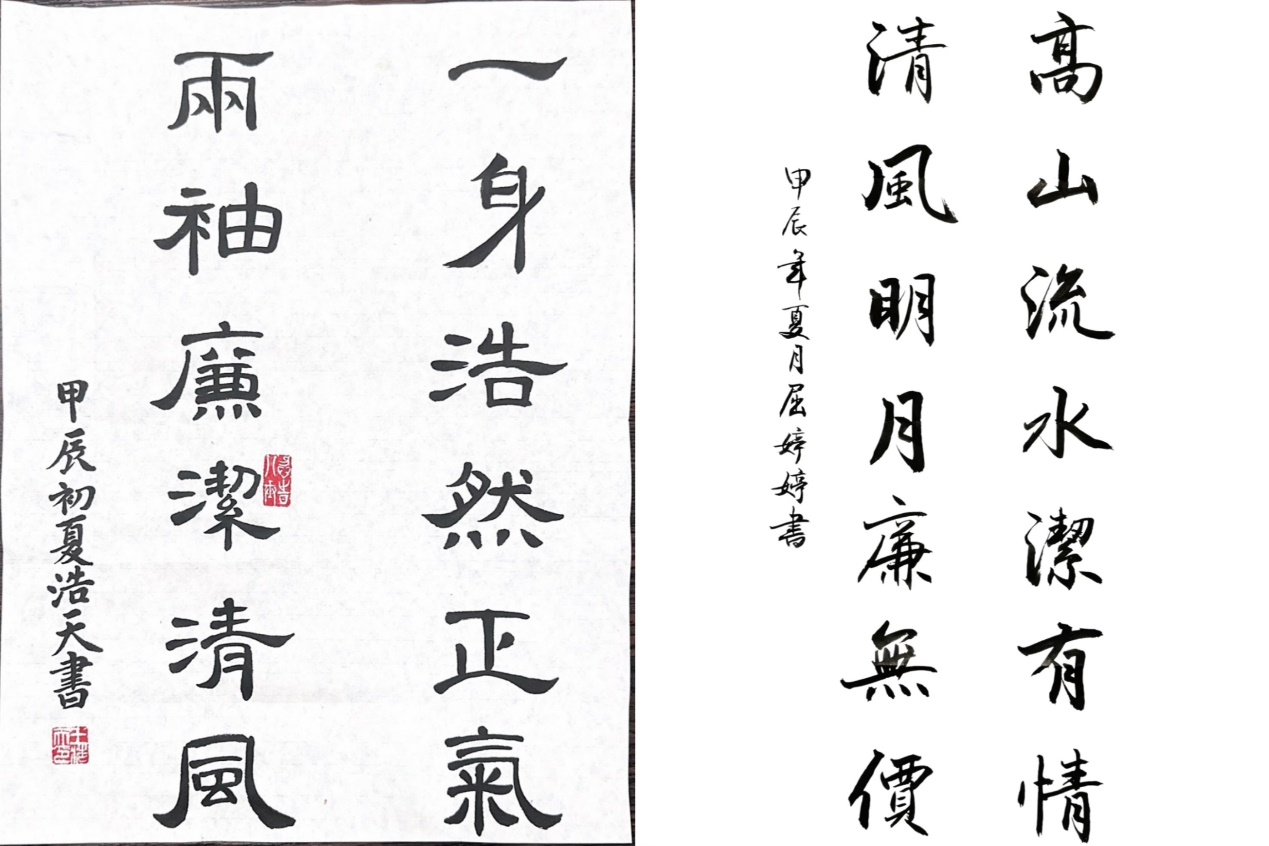 一身浩然正氣
兩袖廉潔清風
甲辰初夏浩天書
高山流水潔有情
清風明月廉無價
甲辰年夏月屈婷婷書